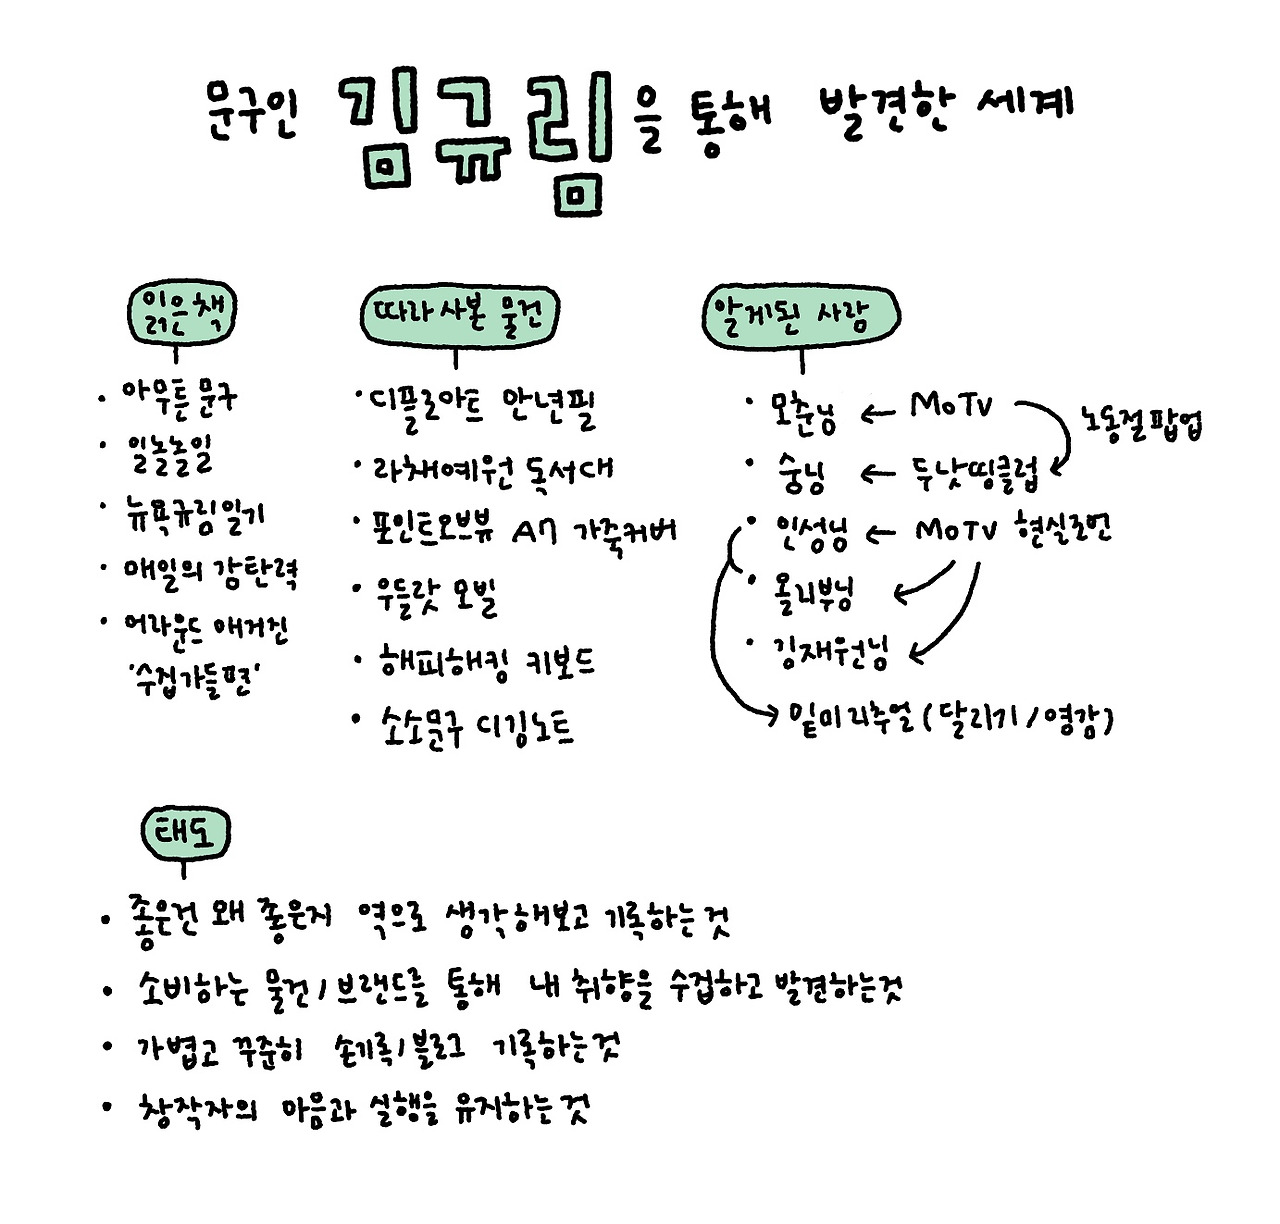 문구인 김규림을 통해 발견한 세계
읽은 책
• 아무튼 문구
• 일놀놀일
• 뉴욕규림일기
• 매일의 감탄력
• 어라운드 매거진
'수집가들편'
따라 사본 물건
• 디플로마트 만년필
• 라채예원 독서대
• 포인트오브뷰 A7 가죽커버
• 우들랏 모빌
• 해피해킹 키보드
• 소소문구 디깅노트
알게된 사람
• 모춘님 ← MoTV
노동절팝업
• 숭님 ← 두낫띵클럽
• 인성님 ← MoTV 현실조언
• 올리부님
• 김재원님
밑미리추얼 (달리기/영감)
태도
• 좋은건 왜 좋은지 역으로 생각해보고 기록하는 것
• 소비하는 물건/브랜드를 통해 내 취향을 수집하고 발견하는것
• 가볍고 꾸준히 손기록/블로그 기록하는것
• 창작자의 마음과 실행을 유지하는 것